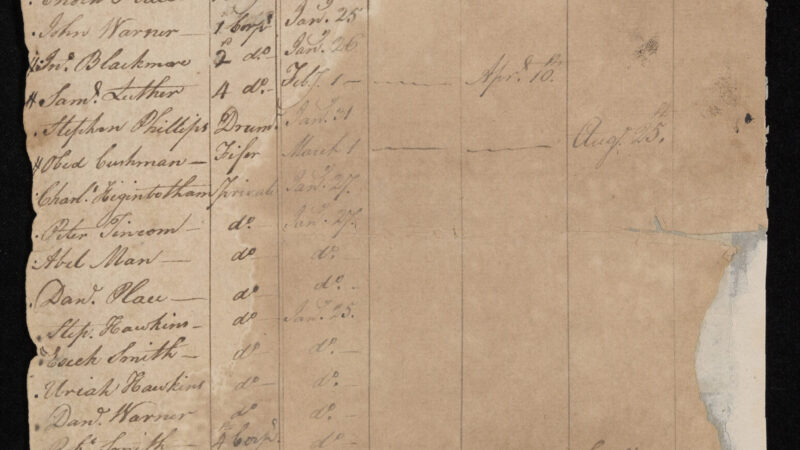 John Warner — 1 Corpl Jany. 25
Jno. Blackmore 2 do. — Jany. 26
Saml. Luther 4 do. — Feby. 1 — — Aprl. 10.
Stephen Phillips Drumr. Jany. 31
Obed Cushman — Fifer March 1 — — Augt. 25.
Charls. Higinbotham private Jany. 27.
Peter — do. Jany. 27.
Abel Man — do. do.
Danl. Place — do. do.
Step. Hawkins — do. Jany. 25.
Esech Smith — do. do. —
Uriah Hawkins do. do. —
Danl. Warner do. do. —
Smith — 4 Corpl. do. —